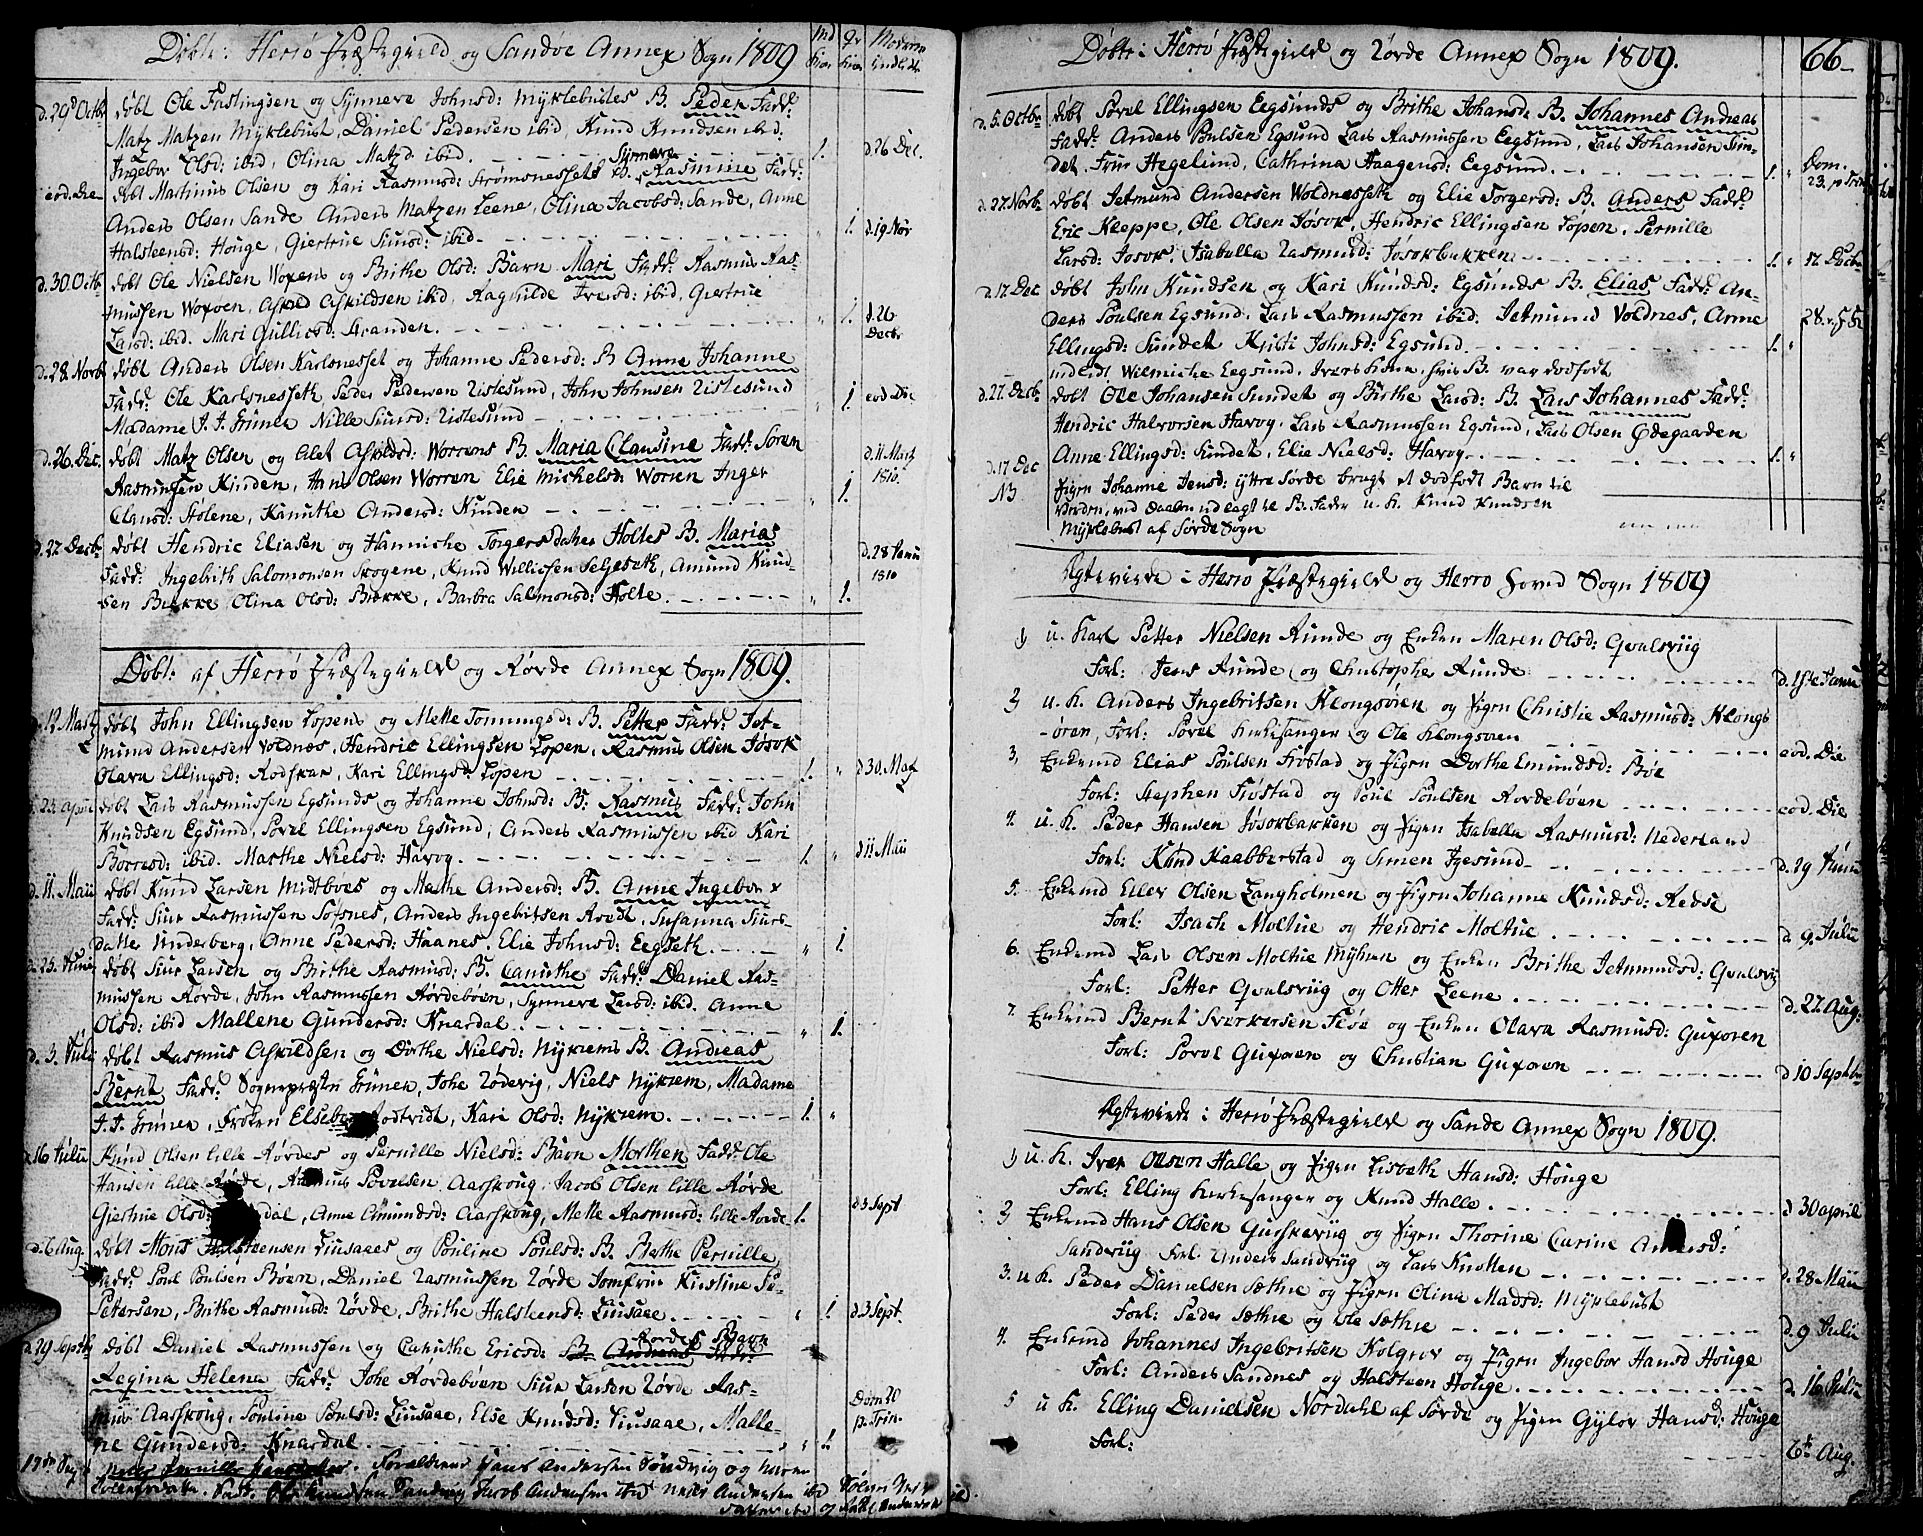 Døbte: Herrø Præstegield og Sandøe Annex Sogn 1809
d. 29 Octbr døbt Ole Fastingsen og Synneve Johnsd: Myklebustes B. Peder Fadd:
Matz Matzen Myklebust, Daniel Pedersen ibid, Knud Knudsen ibid.
Ingebor Olsd: ibid, Olina Matzd. ibid. 1. d. 26 Dec.
eod. Die døbt Martinus Olsen og Kari Rasmusd: Strømsnessets B. Synneve Rasmine Fadd:
Anders Olsen Sande Anders Matzen Leene, Olina Jacobsd: Sande, Anne
Halsteensd: Houge, Giertrue Siursd: ibid. 1. d. 19 Nov
d. 30 Octb døbt Ole Nielsen Woxens og Brithe Olsd: Barn Mari Fadd: Rasmus Ras-
mussen Woxøen, Askild Askildsen ibid, Ragnilde Iversd: ibid, Giertrue
Larsd: ibid. Mari Gullicsd: Stranden. 1. d. 26 Decbr
d. 28 Novb døbt Anders Olsen Karlsnesset og Johanne Pedersd: B Anne Johanne
Fadd: Ole Karlsnesseth Peder Pedersen Ristesund, John Johnsen Ristesund
Madame J. J. Grüner Nille Siursd: Ristesund 1. eod Die
d. 26 Dec. døbt Matz Olsen og Alet Askildsd: Worrens B. Maria Clausine Fadd: Søren
Rasmussen Kinden, Hans Olsen Worren Elie Michelsd: Worren Inger
Clausd: Holene, Kanuthe Andersd: Kinden 1. d. 11 Martz 1810.
d. 27 Decbr døbt Hendric Eliasen og Hanniche Torgersdatter Holtes B. Marias
Fadd: Ingebrith Salomonsen Skogene, Knud Willissen Selgeseth, Amund Knud-
sen Biekke Olina Olsd: Biekke, Barbra Salmonsd: Holte. 1. d. 28 Janu 1810
Døbt: af Herrø Præstegield og Rørde Annex Sogn 1809.
d. 12 Martz døbt John Ellingsen Lopens og Mette Tommingsd: B. Petter Fadd: Jet-
mund Andersen Voldnes, Hendric Ellingsen Lopen, Rasmus Olsen Jøsok
Olava Ellingsd: Rodskar, Kari Ellingsd: Lopen 1. d 30. Maj
d. 23 April døbt Lars Rasmussen Egsunds og Johanne Johnsd: B. Rasmus Fadd: John
Knudsen Egsund, Povel Ellingsen Egsund, Anders Rasmussen ibid Kari
Borresd: ibid. Marthe Nielsd: Havog. 1. d 11 Maii
d. 11. Maii døbt Knud Larsen Midtboes og Mathe Andersd: B. Anne Ingebor
Fadd: Siur Rasmussen Sofsnes, Anders Ingebritsen Aredt, Susanna Siurs-
datter Underberg, Anne Pedersd: Haanes, Elie Johnsd: Eegseth. 1.
d. 25. Junij døbt Siur Larsen og Brithe Rasmusd: B. Canuthe Fadd: Daniel Ras-
mussen Rørde, John Rasmussen Rørdebøen, Synneve Larsd: ibid. Anne
Olsd: ibid Mallene Gundersd: Knardal. 1.
d. 3. Juli døbt Rasmus Askildsen og Dorthe Nielsd: Nykrems B. Andreas
Bernt Fadd: Sognepræsten Grüner, Johe Rødevig, Niels Nykrem, Madame
J. J. Grüner, Frøken Rodtvidt, Kari Olsd: Nykrem. 1.
d 16 Julii Knud Olsen lille Rørdes og Pernille Nielsd: Barn Morthen Fadd: Ole
Hansen lille Rørde, Rasmus Povelsen Aarskoug, Jacob Olsen lille Rørde
Giertrue Olsd: Anne Amundsd: Aarskoug, Mette Rasmusd: lille Rørde. 1. d 3 Sept
d. 6 Aug. døbt Mons Halsteensen Liusaaes og Pouline Poulsd: B. Berthe Pernille
Fadd: Poul Poulsen Bøen, Daniel Rasmussen Rørde Jomfrue Kirstine Pe-
Petersen, Brithe Rasmusd: Rørde, Brithe Halsteensd: Liusaae. 1. d. 3 Sept.
d. 29 Septb døbt Daniel Rasmussen og Canuthe Ericsd: Rordes Barn B. Andreas Fadd:
Regina Helena Fadd: Johe Rørdebøen Siur Larsen Rørde Ras-
mus Aarskoug, Pouline Poulsd: Liusaae, Else Knudsd: Liusaae, Malle-
ne Gundersd: Knardal. 1. Dom 20 p. Trin.
Forældrene Hans Andersen Sandvig og
Jacob Andersen ibid Niels Andersen ibid
Døbte i Herrø Præstegield og Rørde Annex Sogn 1809. 66
d. 5. Octbr døbt Povel Ellingsen Eegsunds og Brithe Johansd. B. Johannes Andreas
Fadd: Anders Poulsen Egsund Lars Rasmussen Eegsund, Lars Johansen Sun-
det. Frue Hegelund, Cathrina Haagensd: Eegsund. 1. Dom. 23. p. Trin
d. 27. Novb døbt Jetmund Andersen Woldnesseth og Elie Torgersd: B. Anders Fadd:
Eric Kleppe, Ole Olsen Jøsok, Hendric Ellingsen Lopen, Pernille
Larsd: Jøsok, Isabella Rasmusd: Jøsokbakken 1. 17 Decbr
d. 17. Dec døbt John Knudsen og Kari Knudsd: Egsunds B. Elias Fadd: An-
ders Poulsen Egsund, Lars Rasmussen ibid. Jetmund Voldnes, Anne
Ellingsd: Sundet Kisti Johnsd: Egsund. 1.
indledt Wilmiche Eegsund, Ivers Kone, hvis B. var dødfødt
d. 27. Decbr døbt Ole Johansen Sundet og Birthe Larsd: B. Lars Johannes Fadd:
Hendric Halvorsen Havog. Lars Rasmussen Egsund, Lars Olsen Ødegaarden
Anne Ellingsd: Sundet, Elie Nielsd: Havog. 1.
d. 17 Dec Pigen Johanne Jensd: yttre Rørde bragt et dødfødt Barn til
NB Verden, ved Daaben udlagt til B. Fader u. K. Knud Knudsen
Myklebust af Rørde Sogn
Ægteviede i Herrø Præstegield og Herrø Hoved Sogn 1809
1) u. Karl Petter Nielsen Runde og Enken Maren Olsd: Qvalsviig
Forl: Jens Runde og Christopher Runde d. 1ste Janu
2 u. K. Anders Ingebritsen Klongsøien og Pigen Christie Rasmusd: Klongs
-øren, Forl: Povel Kirkesanger og Ole Klongsøren eod. Die
3, Enkemd Elias Poulsen Fiøstad og Pigen Dorthe Emundsd: Bøe
Forl: Stephen Fiøstad og Poul Poulsen Rørdebøen eod. Die
4. u. K. Peder Hansen Jøsokbakken og Pigen Isabella Rasmusd: Nederland
Forl: Knud Kaabberstad og Simen Igesund d. 29 Junii
5. Enkemd Eller Olsen Langholmen og Pigen Johanne Knudsd: Redse
Forl: Isach Moltue og Hendric Moltue d 9. Julii
6. Enkemd Lars Olsen Moltue Myhren og Enken Brithe Jetmundsd: Qvalsvig
Forl: Petter Qvalsviig og Otter Leene d. 27 Aug:
7. Enkemd Bernt Sverkersen Fløe og Enken Olava Rasmusd: Guxøren
Forl: Povel Guxøen og Christian Guxøen d 10 Septbr
Ægteviede i Herrø Præstegield og Sande Annex Sogn 1809.
1) u. K. Iver Olsen Halle og Pigen Lisbeth Hansd: Houge
Forl: Elling Kirkesanger og Knud Halle d 30 april
2 Enkemd Hans Olsen Gurskeviig og Pigen Thorine Carine Andersd:
Sandviig Forl. Anders Sandviig og Lars Knotten d. 28 Maii
3. u. K. Peder Danielsen Sæthre og Pigen Olina Madsd: Myklebust
Forl: Peder Sæthre og Ole Sæthre d. 9 Julii
4. Enkemd Johannes Ingebritsen Kolgrov og Pigen Ingebor Hansd Houge
Forl: Anders Sandnes og Halsteen Houge d 16 Julii
5 u K. Elling Danielsen Nordahl af Rørde og Pigen Gyløv Hansd: Houge
Forl: 6te Aug.